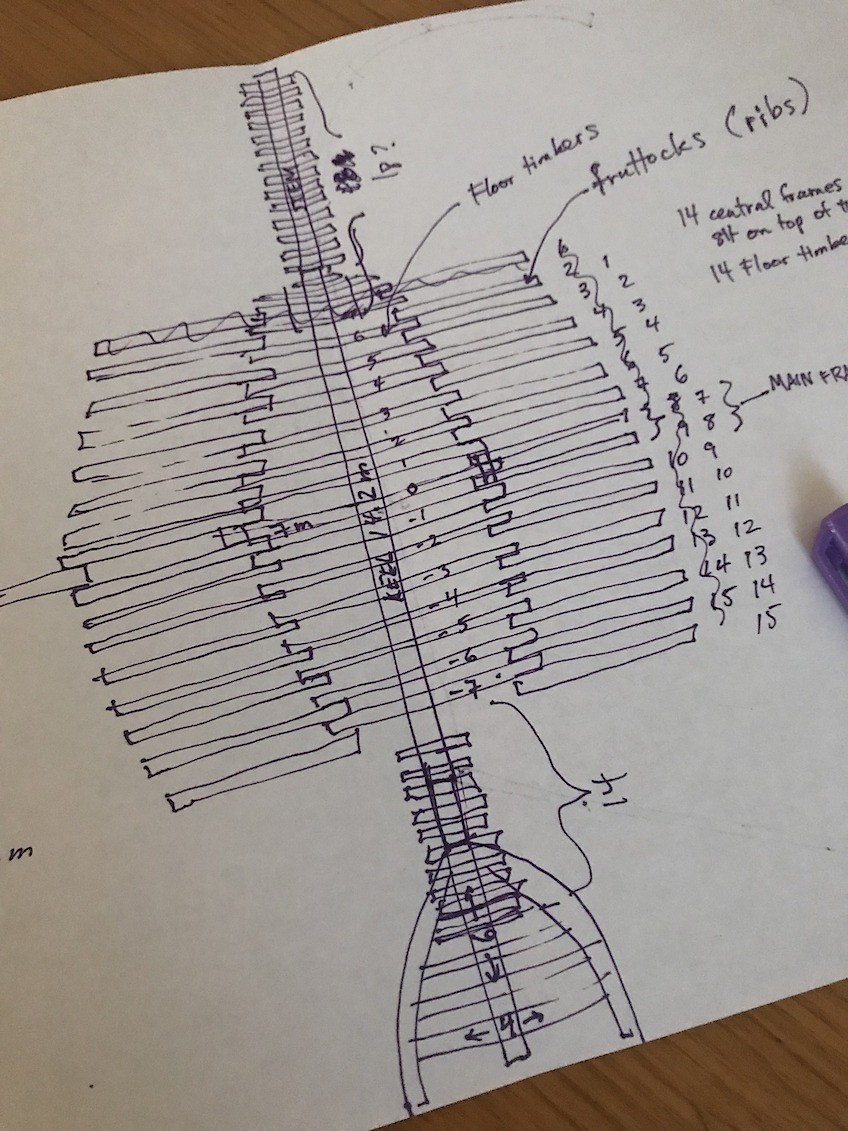 18?
Floor timbers
fruttocks (ribs)
14 central frames
84 on top of
14 Floor
MAIN
6 1
2 2
3 3
4 4
5 5
6 6
7 8 7
9 8
10 9
11 10
12 11
13 12
14 13
15 14
15
6
5
4
3
2
1
0
-1
-2
-3
-4
-5
-6
-7
KEEL 14.2 m
m
6
4